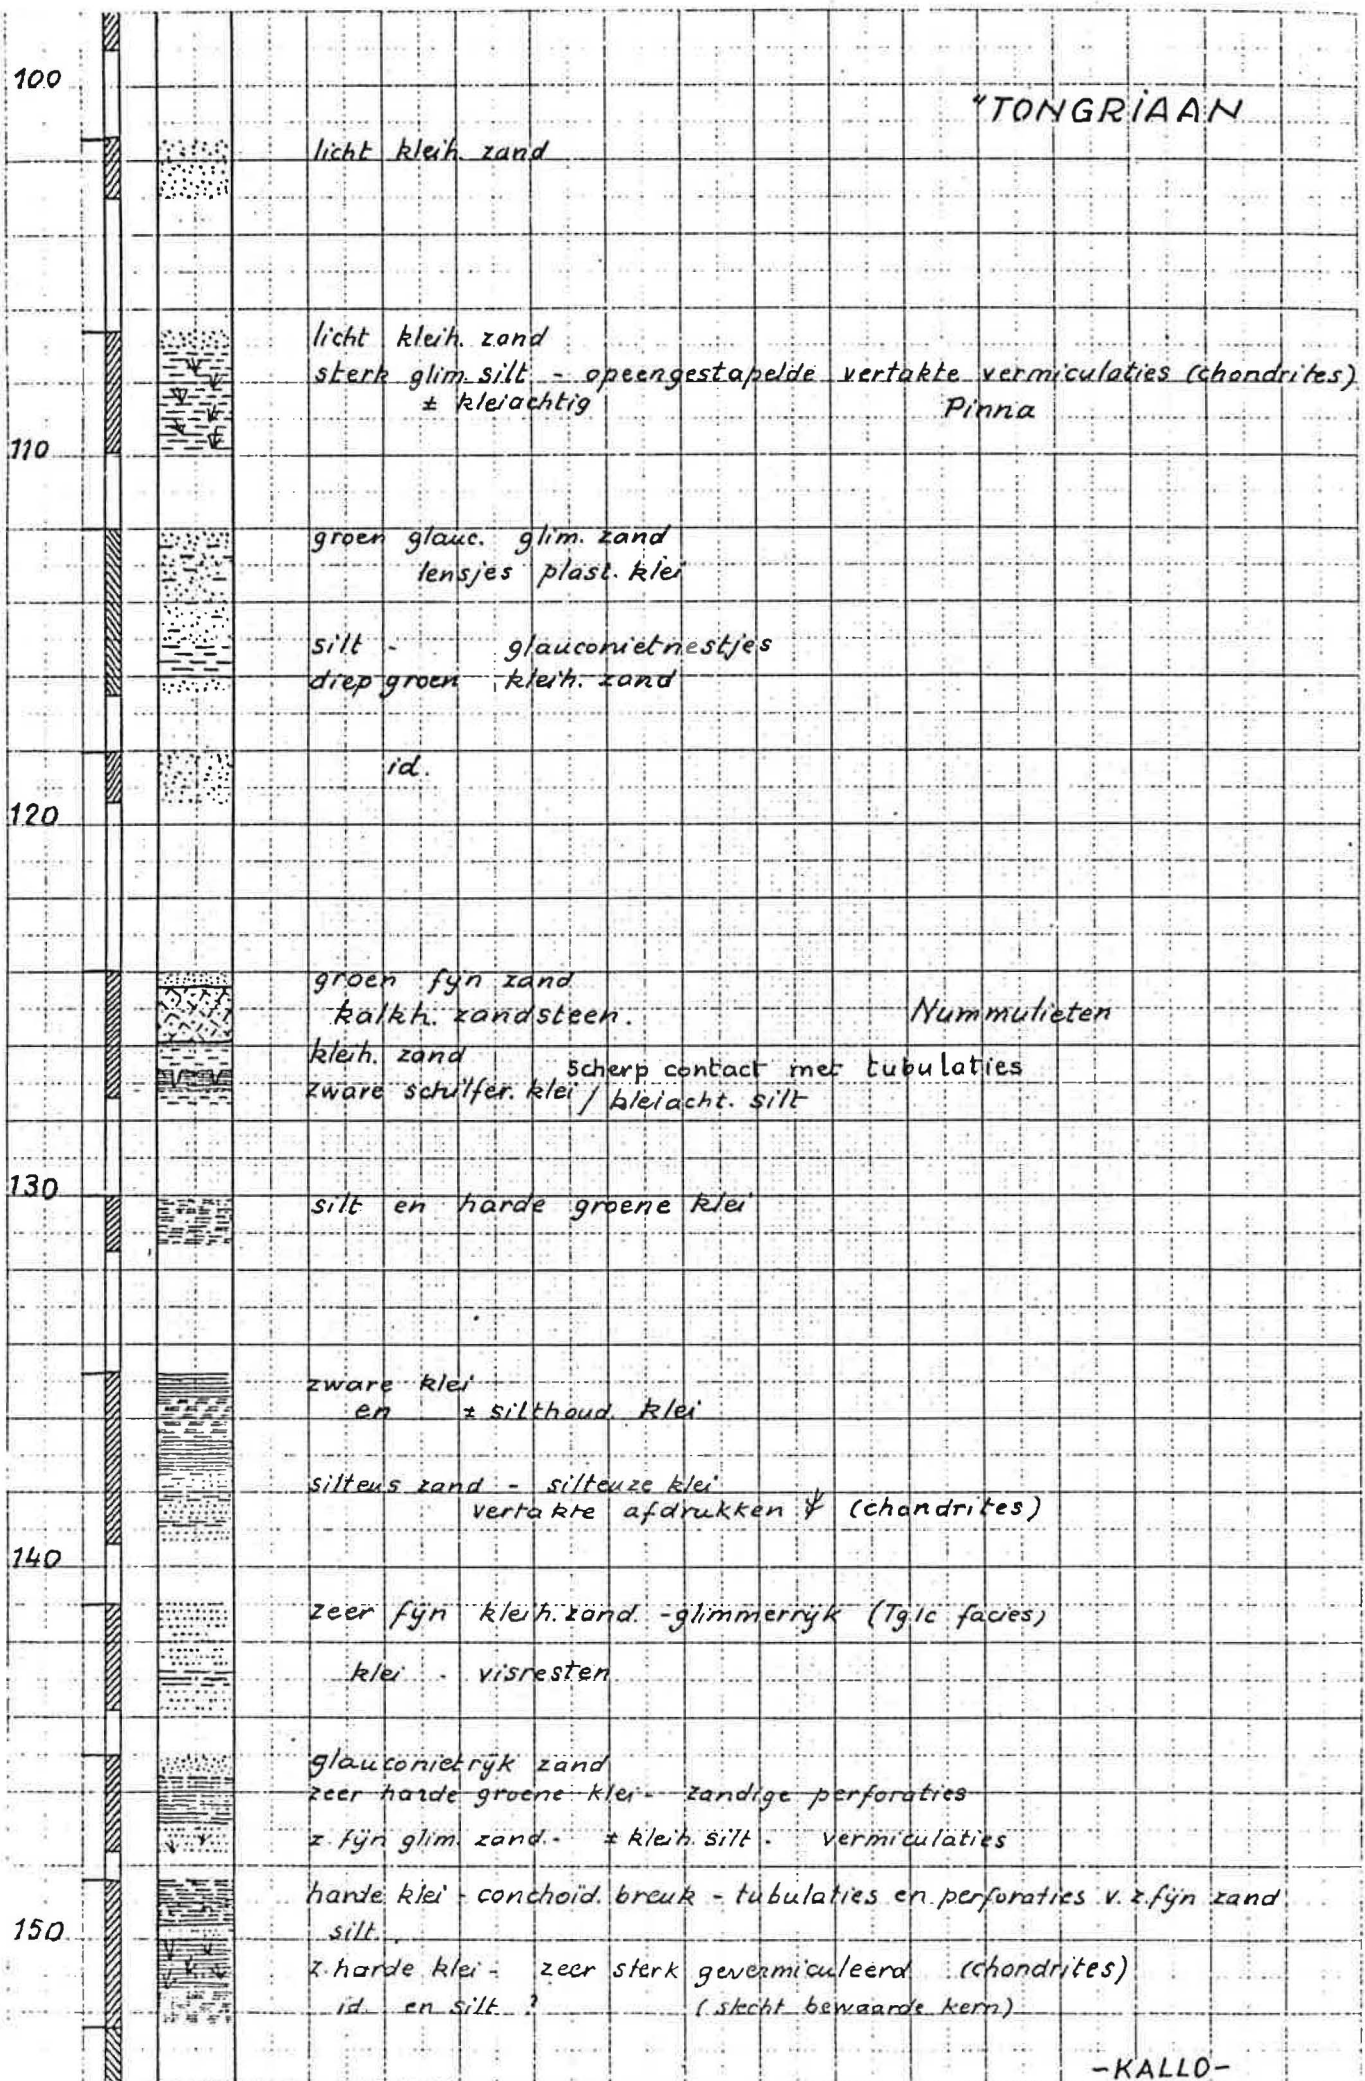 100
"TONGRIAAN
licht kleih. zand
licht kleih. zand
sterk glim. silt - opeengestapelde vertakte vermiculaties (chondrites)
± kleiachtig Pinna
110
groen glauc. glim. zand
lensjes plast. klei
silt - glauconietnestjes
diep groen kleih. zand
id.
120
groen fijn zand
kalkh. zandsteen. Nummulieten
kleih. zand
Scherp contact met tubulaties
zware schilfer. klei / kleiacht. silt
130
silt en harde groene klei
zware klei
en ± silthoud. klei
silteus zand - silteuze klei
vertakte afdrukken (chondrites)
140
zeer fijn kleih. zand. - glimmerrijk (Tg1c facies)
klei - visresten
glauconietrijk zand
zeer harde groene klei - zandige perforaties
z. fijn glim. zand. - ± kleih. silt - vermiculaties
harde klei - conchoïd. breuk - tubulaties en perforaties v. z. fijn zand
150
silt.
z. harde klei - zeer sterk gevermiculeerd (chondrites)
id. en silt ? (slecht bewaarde kern)
-KALLO-